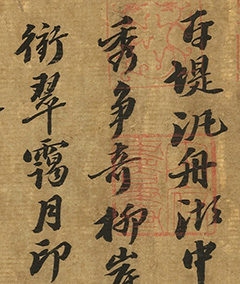 堤汎舟湖中
秀争奇柳岸
銜翠靄月印